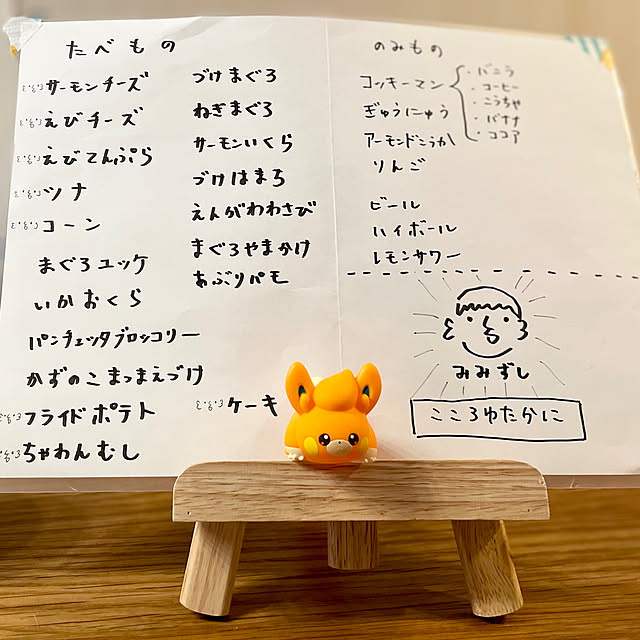 たべもの
サーモンチーズ
えびチーズ
えびてんぷら
ツナ
コーン
まぐろユッケ
いかおくら
パンチェッタブロッコリー
かずのこまつまえづけ
フライドポテト
ちゃわんむし
づけまぐろ
ねぎまぐろ
サーモンいくら
づけはまち
えんがわわさび
まぐろやまかけ
あぶりパモ
ケーキ
のみもの
コッキーマン
・バニラ
・コーヒー
・こうちゃ
・バナナ
・ココア
ぎゅうにゅう
アーモンドこうか
りんご
ビール
ハイボール
レモンサワー
みみずし
こころゆたかに